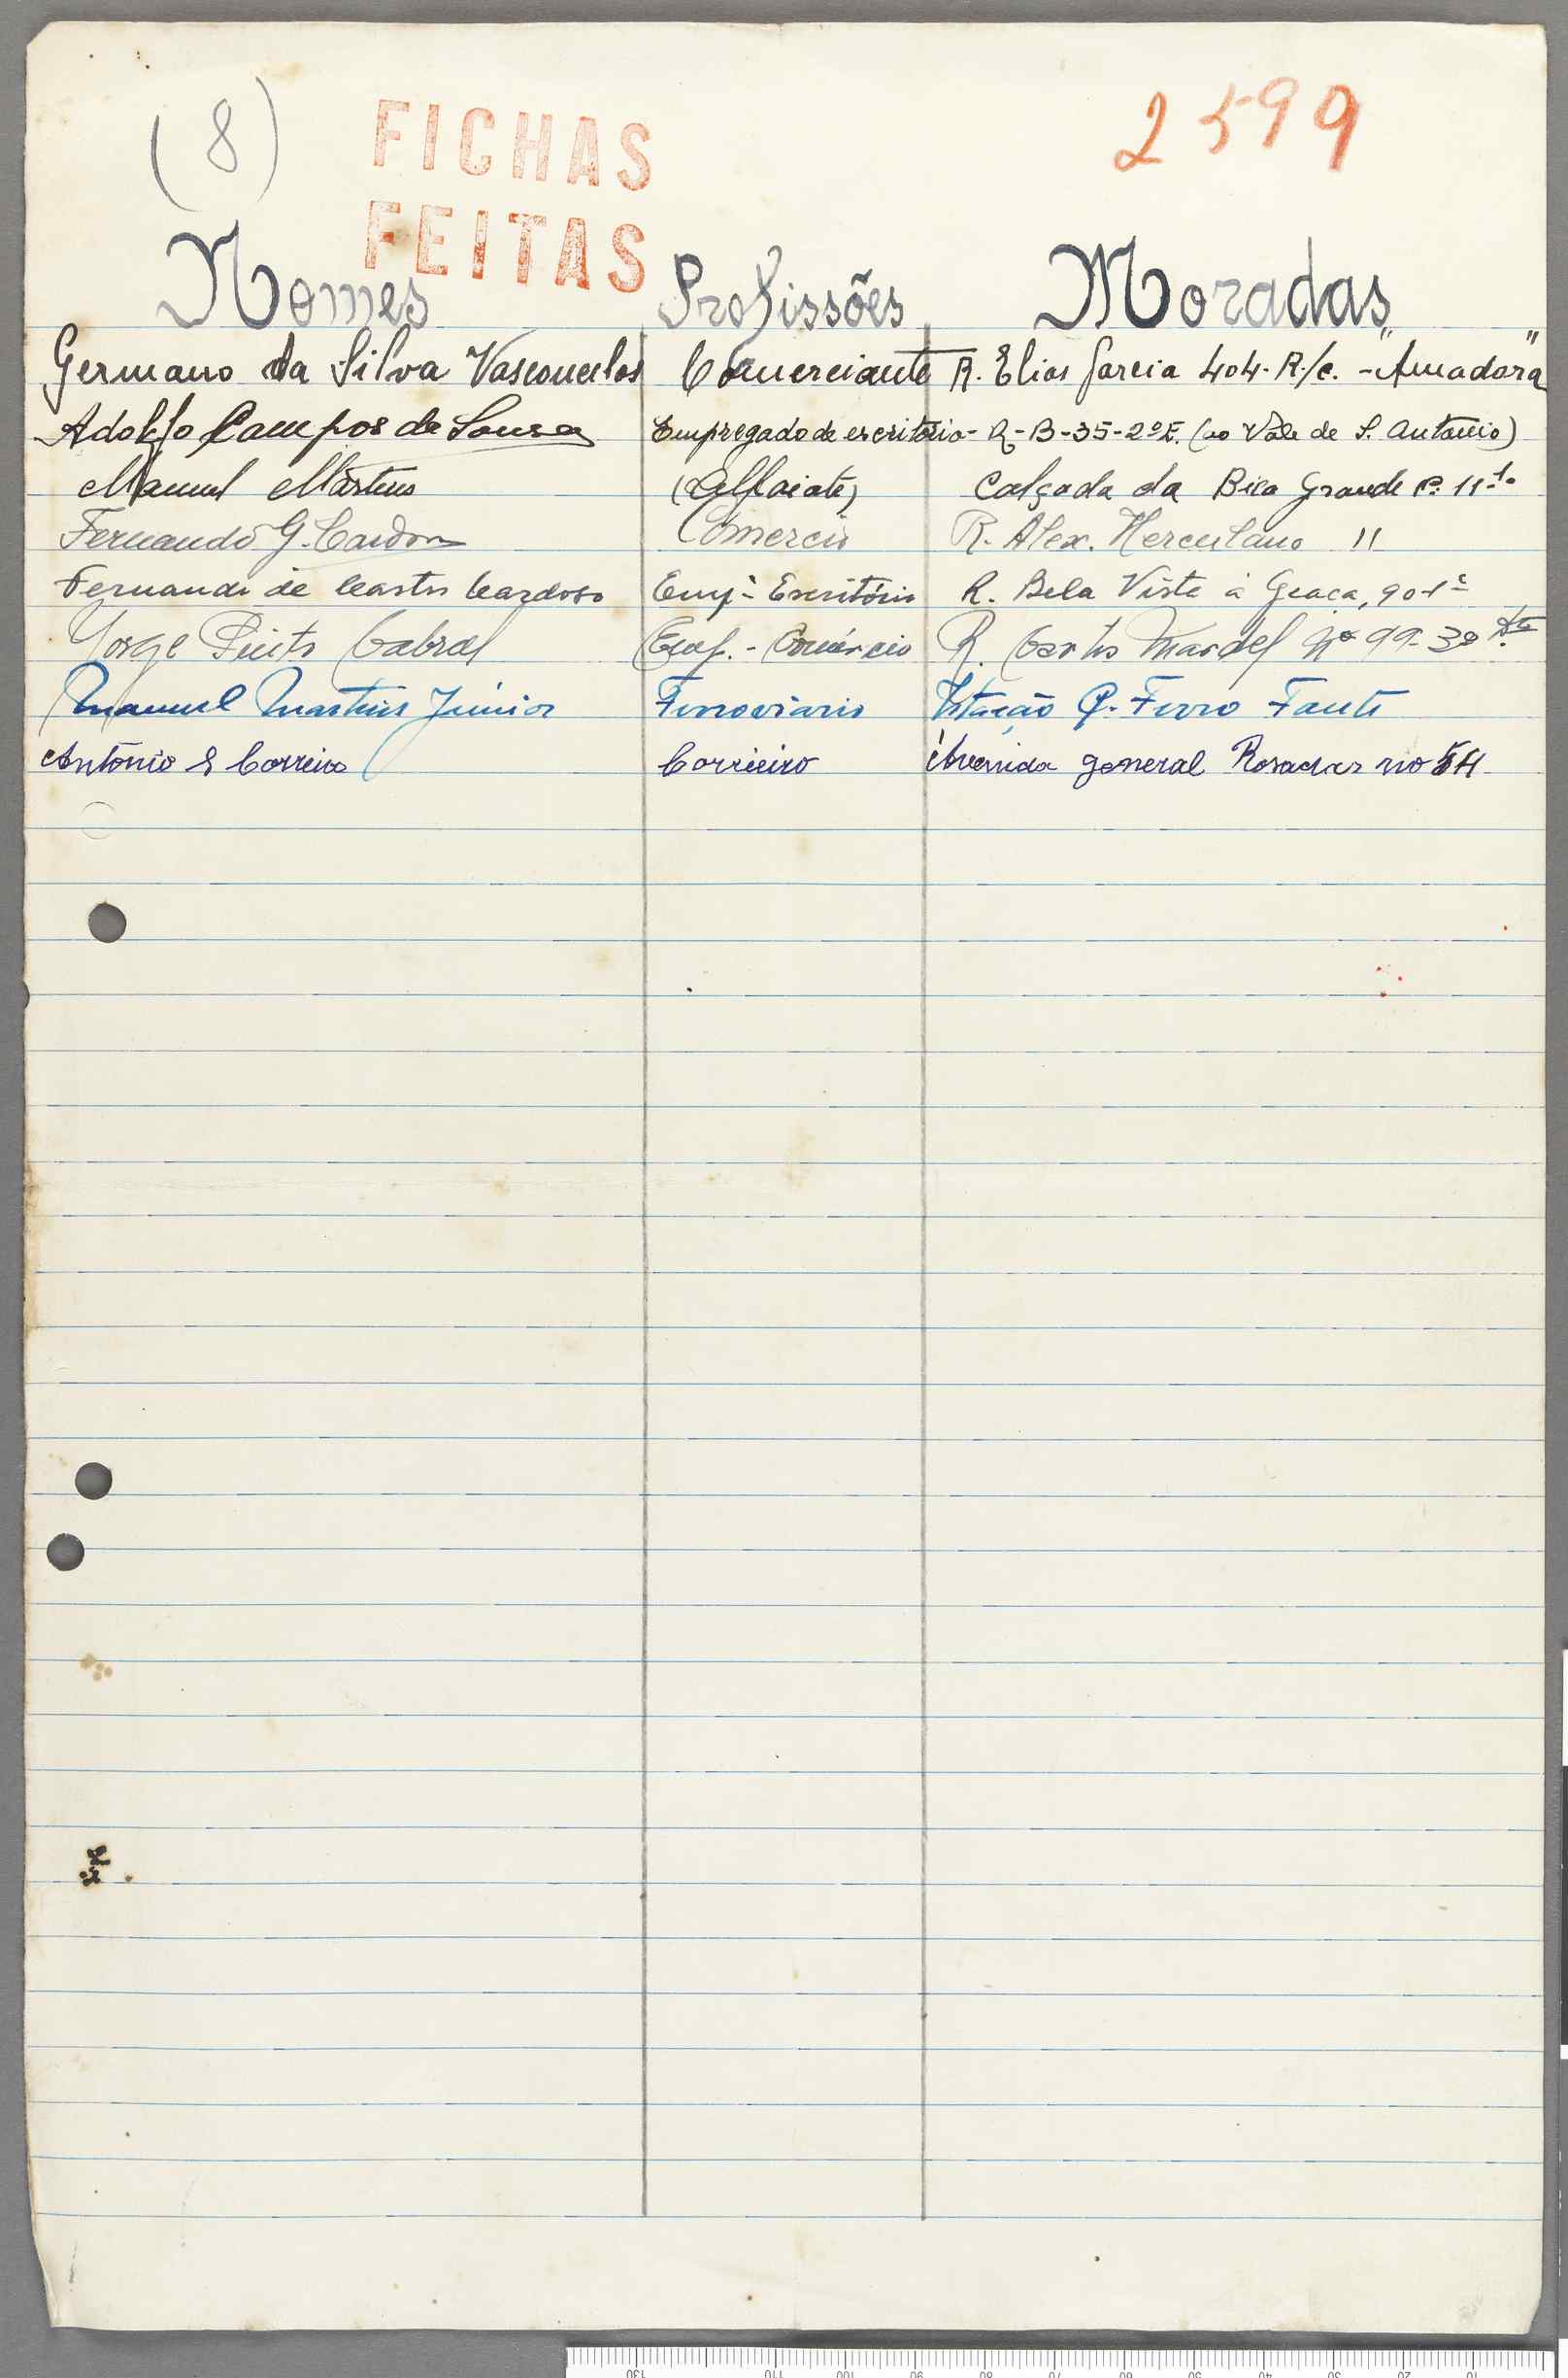 (8) FICHAS 2599
FEITAS
Nomes Profissões Moradas
Germano da Silva Vasconcelos Comerciante R. Elias Garcia 404-R/c. - "Amadora"
Adolfo Campos de Sousa Empregado de escritório - R-B-35-2º E. (ao Vale de S. António)
Manuel Martins (Alfaiate) Calçada da Bica Grande 11-1º
Fernando G. Cardoso Comercio R. Alex. Herculano 11
Fernando de Castro Cardoso Empº Escritório R. Bela Vista à Graça, 90-1º
Jorge Pinto Cabral Emp. - Comércio R. Carlos Mardel Nº 99-3º
Manuel Martins Júnior Ferroviario Estação C. Ferro
António S Correira Corrieiro Avenida general Rosadas no 54